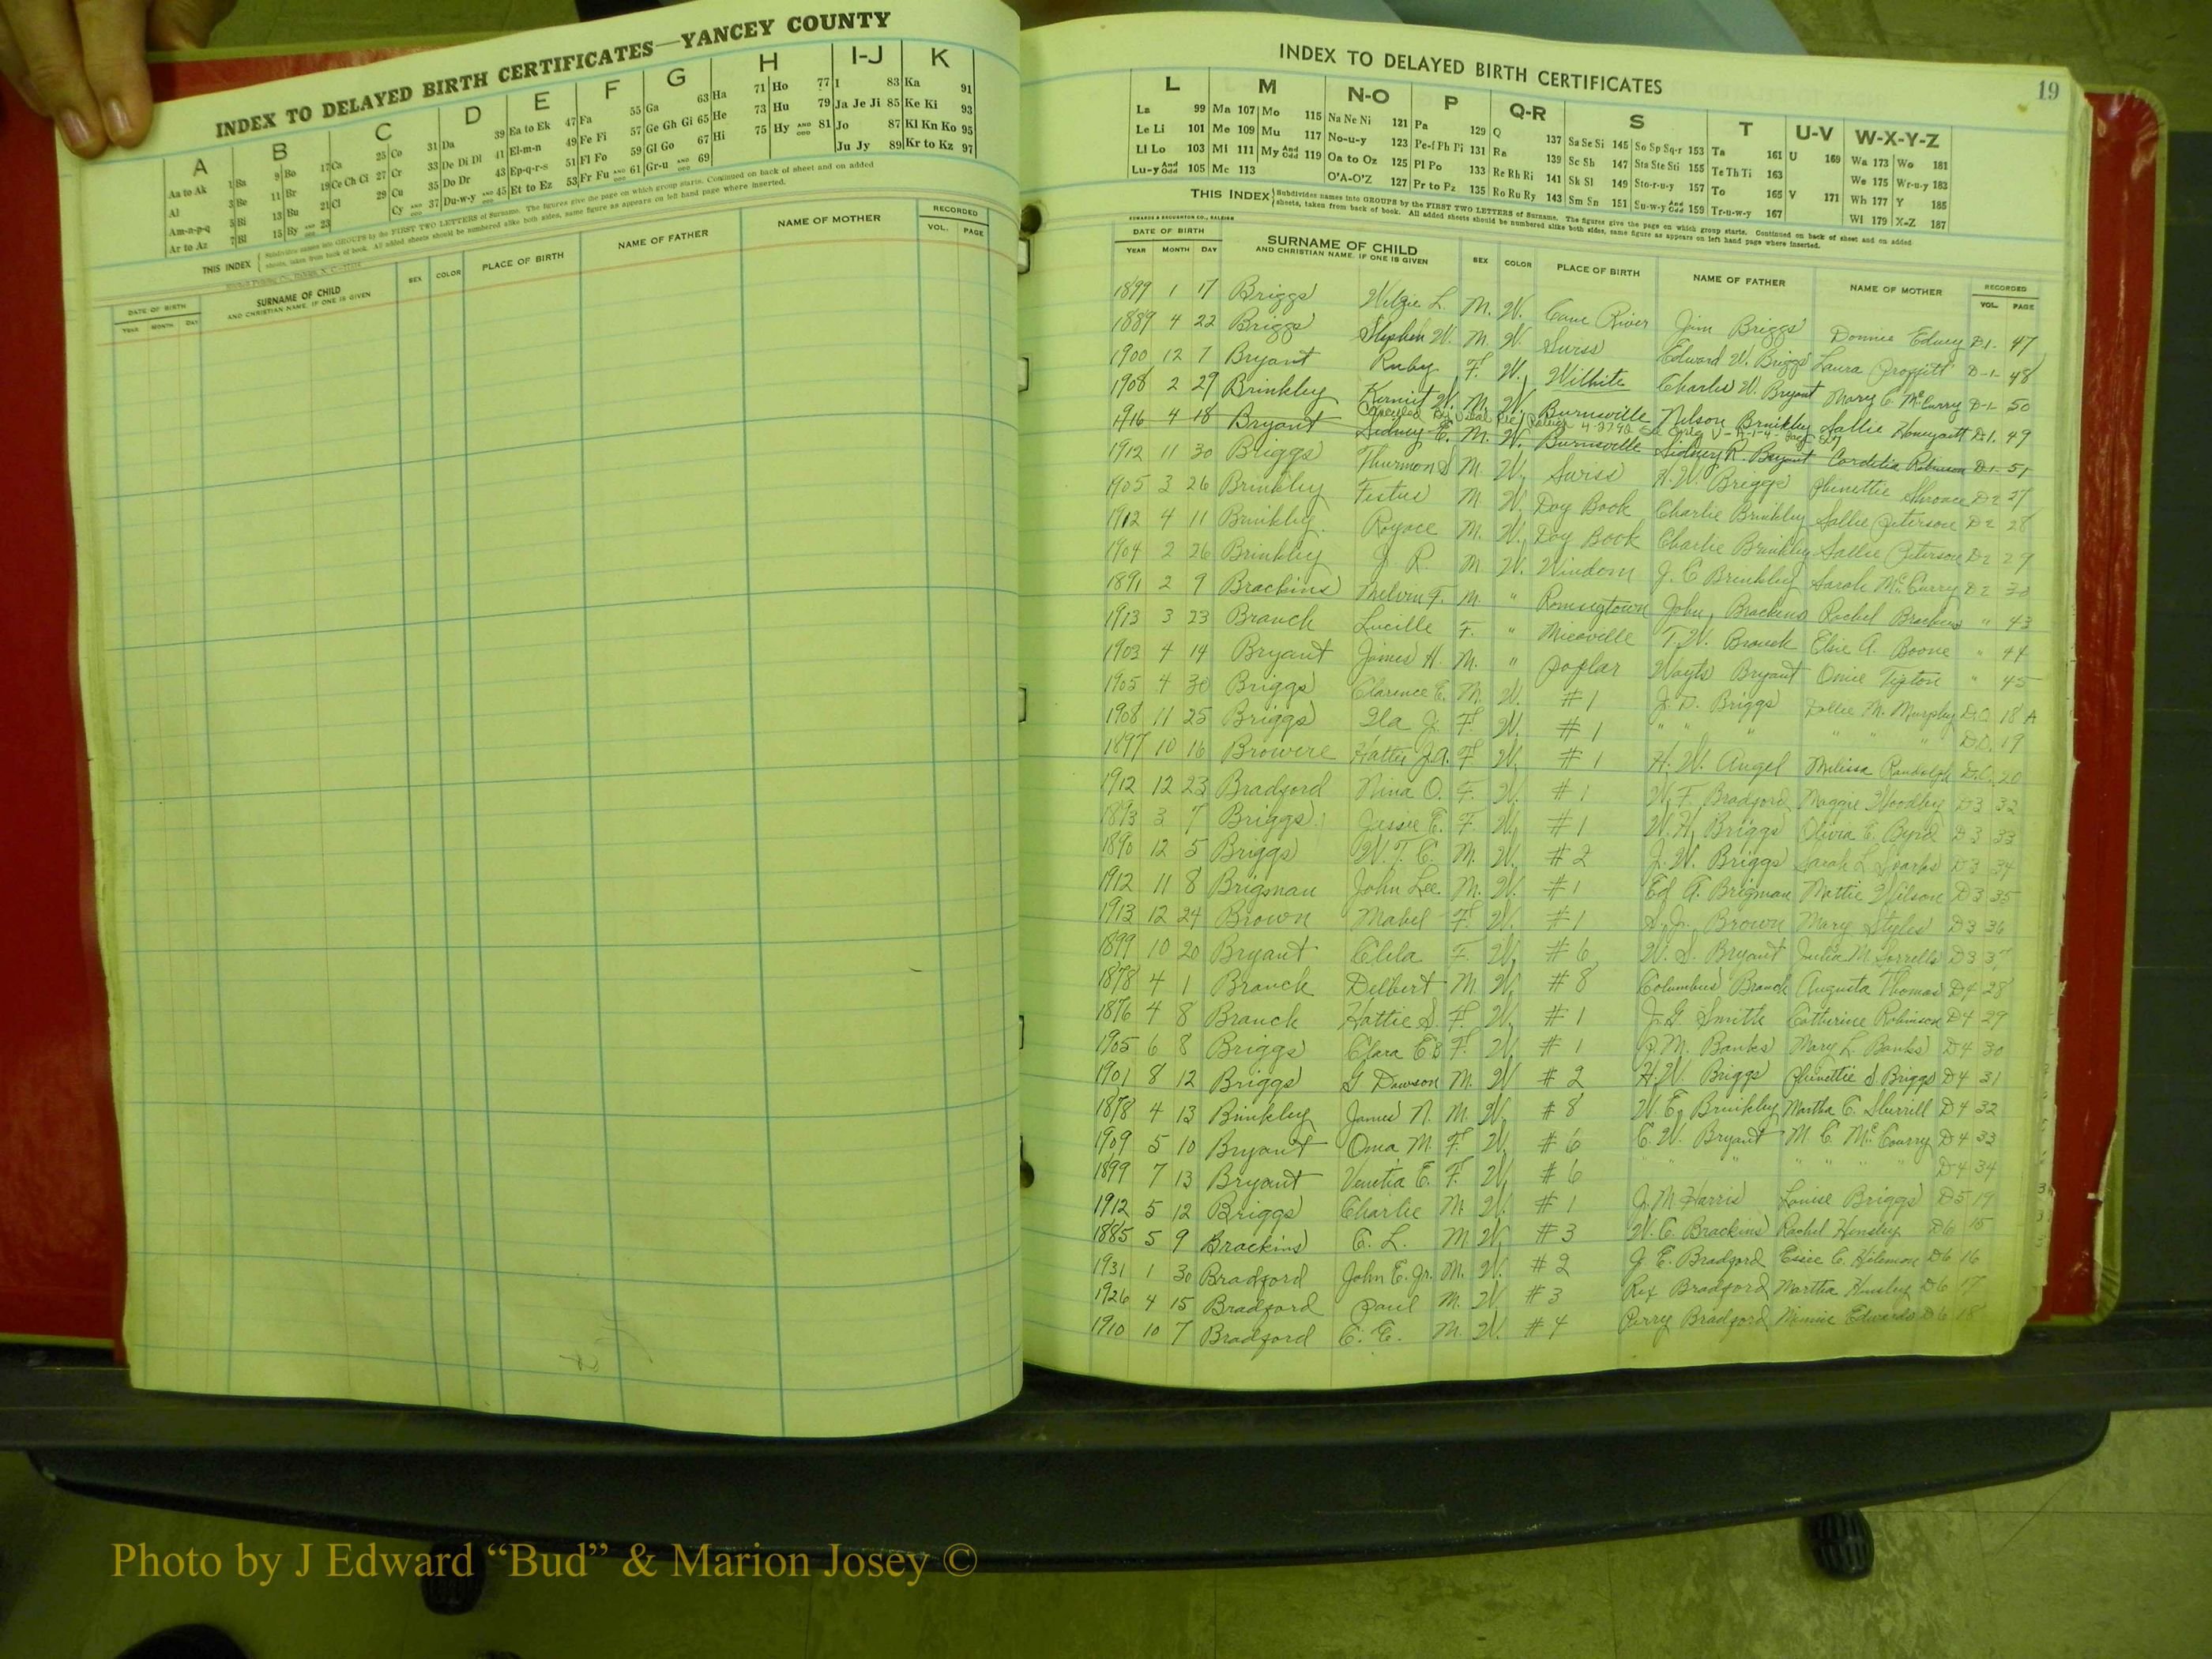 INDEX TO DELAYED BIRTH CERTIFICATES—YANCEY COUNTY
A B C D E F G H I-J K
Aa to Ak 1 Ba 9 Bo 17 Ca 25 Co 31 Da 39 Ea to Ek 47 Fa 55 Ga 63 Ha 71 Ho 77 I 83 Ka 91
Al 3 Be 11 Br 19 Ce Ch Ci 27 Cr 33 De Di Dl 41 El-m-n 49 Fe Fi 57 Ge Gh Gi 65 He 73 Hu 79 Ja Je Ji 85 Ke Ki 93
Am-n-p-q 5 Bi 13 Bu 21 Cl 29 Cu 35 Do Dr 43 Ep-q-r-s 51 Fl Fo 59 Gl Go 67 Hi 75 Hy AND ODD 81 Jo 87 Kl Kn Ko 95
Ar to Az 7 Bl 15 By AND ODD 23 Cy AND ODD 37 Du-w-y AND ODD 45 Et to Ez 53 Fr Fu AND ODD 61 Gr-u AND ODD 69 Ju Jy 89 Kr to Kz 97
THIS INDEX Subdivides names into GROUPS by the FIRST TWO LETTERS of Surname. The figures give the page on which group starts. Continued on back of sheet and on added
sheets, taken from back of book. All added sheets should be numbered alike both sides, same figure as appears on left hand page where inserted.
DATE OF BIRTH SURNAME OF CHILD SEX COLOR PLACE OF BIRTH NAME OF FATHER NAME OF MOTHER RECORDED
YEAR MONTH DAY AND CHRISTIAN NAME, IF ONE IS GIVEN VOL. PAGE
INDEX TO DELAYED BIRTH CERTIFICATES
19
L M N-O P Q-R S T U-V W-X-Y-Z
La 99 Ma 107 Mo 115 Na Ne Ni 121 Pa 129 Q 137 Sa Se Si 145 So Sp Sq-r 153 Ta 161 U 169 Wa 173 Wo 181
Le Li 101 Me 109 Mu 117 No-u-y 123 Pe-f Ph Pi 131 Ra 139 Sc Sh 147 Sta Ste Sti 155 Te Th Ti 163 We 175 Wr-u-y 183
Ll Lo 103 Mi 111 My And Odd 119 Oa to Oz 125 Pl Po 133 Re Rh Ri 141 Sk Sl 149 Sto-r-u-y 157 To 165 V 171 Wh 177 Y 185
Lu-y And Odd 105 Mc 113 O'A-O'Z 127 Pr to Pz 135 Ro Ru Ry 143 Sm Sn 151 Su-w-y And Odd 159 Tr-u-w-y 167 Wi 179 X-Z 187
THIS INDEX Subdivides names into GROUPS by the FIRST TWO LETTERS of Surname. The figures give the page on which group starts. Continued on back of sheet and on added
sheets, taken from back of book. All added sheets should be numbered alike both sides, same figure as appears on left hand page where inserted.
EDWARDS & BROUGHTON CO., RALEIGH
DATE OF BIRTH SURNAME OF CHILD SEX COLOR PLACE OF BIRTH NAME OF FATHER NAME OF MOTHER RECORDED
YEAR MONTH DAY AND CHRISTIAN NAME, IF ONE IS GIVEN VOL. PAGE
1899 1 17 Briggs L. M. W. Cane River Jim Briggs Donnie Edney D1- 47
1889 4 22 Briggs Stephen W. M. W. Swiss Edward W. Briggs Laura Proffitt D-1- 48
1900 12 7 Bryant Ruby F. W. Wilhite Charles W. Bryant Mary C. McCurry D-1- 50
1908 2 29 Brinkley Kermit W. M. W. Burnsville Nelson Brinkley Sallie Honeycutt D-1. 49
1916 4 18 Bryant Sidney E. M. W. Burnsville Sidney R. Bryant Cordelia Robinson D-1- 51
1912 11 30 Briggs Thurmon S M. W. Swiss H. W. Briggs Phinettie D2 27
1905 3 26 Brinkley Festus M. W. Day Book Charlie Brinkley Sallie Peterson D2 28
1912 4 11 Brinkley Royace M. W. Day Book Charlie Brinkley Sallie Peterson D2 29
1904 2 26 Brinkley J. R. M W. Windom J. C Brinkley Sarah McCurry D2 30
1891 2 9 Brackins Melvin F. M. " Ramseytown John Brackens Rachel Brackens " 43
1913 3 23 Branch Lucille F. " Micaville T. W. Branch Elsie A. Boone " 44
1903 4 14 Bryant James H. M. " Poplar Wayts Bryant Omie Tipton " 45
1905 4 30 Briggs Clarence E. M. W. #1 J. D. Briggs Dollie M. Murphy D.C. 18 A
1908 11 25 Briggs Ila J. F. W. #1 " " " " " " D.C. 19
1897 10 16 Browere Hattie J.A. F W. #1 H. W. Angel Melissa Randolph D.C. 20
1912 12 23 Bradford Nina O. F. W. #1 W. F. Bradford Maggie Woodby D3 32
1893 3 7 Briggs Jessie E. F. W. #1 W. H. Briggs Olivia E. Byrd D3 33
1890 12 5 Briggs W. T. C. M. W. #2 J. W. Briggs Sarah L Sparks D3 34
1912 11 8 Brigman John Lee M. W. #1 Ed A. Brigman Mattie Wilson D3 35
1913 12 24 Brown Mabel F. W. #1 S. J. Brown Mary Styles D3 36
1899 10 20 Bryant Clila F. W. #6 W. S. Bryant Julia M. Sorrells D3 37
1878 4 1 Branch Delbert M W. #8 Columbus Branch Augusta Thomas D4 28
1876 4 8 Branch Hattie S. F. W. #1 J. G Smith Catherine Robinson D4 29
1905 6 8 Briggs Clara E B F. W. #1 J. M. Banks Mary L. Banks D4 30
1901 8 12 Briggs G Dawson M. W #2 H. W. Briggs Phinettie S Briggs D4 31
1878 4 13 Brinkley James N. M. W. #8 W. E. Brinkley Martha C. Sherrill D4 32
1909 5 10 Bryant Oma M. F. W. #6 C. W. Bryant M. C. McCourry D4 33
1899 7 13 Bryant Venetia E. F. W. #6 " " " " " " D4 34
1912 5 12 Briggs Charlie M. W. #1 J. M Harris Louise Briggs D5 19
1885 5 9 Brackins C. L. M W. #3 W. C. Brackins Rachel Hensley D6 15
1931 1 30 Bradford John E. Jr. M. W. #2 J. E. Bradford Essie C. Hilemon D6 16
1926 4 15 Bradford Paul M. W. #3 Rex Bradford Martha Hensley D6 17
1910 10 7 Bradford C. E. M. W. #4 Perry Bradford Minnie Edwards D6 18
Photo by J Edward “Bud” & Marion Josey ©